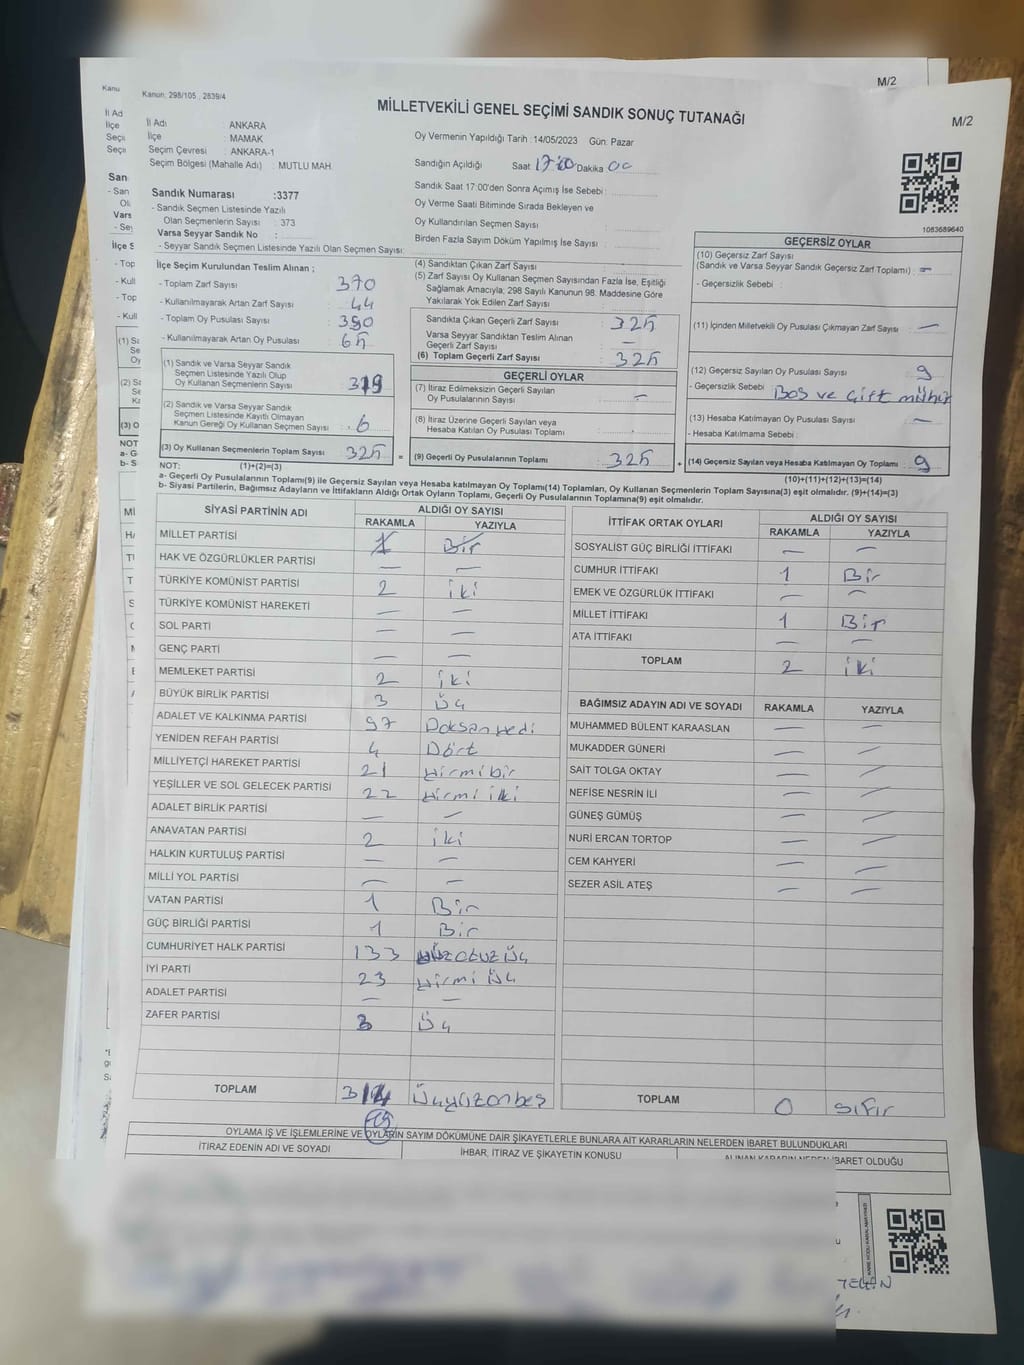 Kanun; 298/105 , 2839/4
M/2
M/2
MİLLETVEKİLİ GENEL SEÇİMİ SANDIK SONUÇ TUTANAĞI
İl Adı : ANKARA
İlçe : MAMAK
Seçim Çevresi : ANKARA-1
Seçim Bölgesi (Mahalle Adı) : MUTLU MAH.
Oy Vermenin Yapıldığı Tarih :14/05/2023 Gün: Pazar
Sandığın Açıldığı Saat 17:00 Dakika 00
Sandık Saat 17:00'den Sonra Açımış İse Sebebi :
Oy Verme Saati Bitiminde Sırada Bekleyen ve
Oy Kullandırılan Seçmen Sayısı :
Birden Fazla Sayım Döküm Yapılmış İse Sayısı :
1083689640
Sandık Numarası :3377
- Sandık Seçmen Listesinde Yazılı
Olan Seçmenlerin Sayısı : 373
Varsa Seyyar Sandık No :
- Seyyar Sandık Seçmen Listesinde Yazılı Olan Seçmen Sayısı:
İlçe Seçim Kurulundan Teslim Alınan ;
- Toplam Zarf Sayısı : 370
- Kullanılmayarak Artan Zarf Sayısı : 44
- Toplam Oy Pusulası Sayısı : 390
- Kullanılmayarak Artan Oy Pusulası : 65
(1) Sandık ve Varsa Seyyar Sandık
Seçmen Listesinde Yazılı Olup
Oy Kullanan Seçmenlerin Sayısı : 319
(2) Sandık ve Varsa Seyyar Sandık
Seçmen Listesinde Kayıtlı Olmayan
Kanun Gereği Oy Kullanan Seçmen Sayısı : 6
(3) Oy Kullanan Seçmenlerin Toplam Sayısı : 325
(4) Sandıktan Çıkan Zarf Sayısı :
(5) Zarf Sayısı Oy Kullanan Seçmen Sayısından Fazla İse, Eşitliği
Sağlamak Amacıyla, 298 Sayılı Kanunun 98. Maddesine Göre
Yakılarak Yok Edilen Zarf Sayısı :
Sandıkta Çıkan Geçerli Zarf Sayısı : 325
Varsa Seyyar Sandıktan Teslim Alınan
Geçerli Zarf Sayısı : —
(6) Toplam Geçerli Zarf Sayısı : 325
GEÇERLİ OYLAR
(7) İtiraz Edilmeksizin Geçerli Sayılan
Oy Pusulalarının Sayısı : —
(8) İtiraz Üzerine Geçerli Sayılan veya
Hesaba Katılan Oy Pusulası Toplamı :
= (9) Geçerli Oy Pusulalarının Toplamı : 325
GEÇERSİZ OYLAR
(10) Geçersiz Zarf Sayısı
(Sandık ve Varsa Seyyar Sandık Geçersiz Zarf Toplamı) : —
- Geçersizlik Sebebi :
(11) İçinden Milletvekili Oy Pusulası Çıkmayan Zarf Sayısı : —
(12) Geçersiz Sayılan Oy Pusulası Sayısı : 9
- Geçersizlik Sebebi : Boş ve Çift mühür
(13) Hesaba Katılmayan Oy Pusulası Sayısı : —
- Hesaba Katılmama Sebebi :
+ (14) Geçersiz Sayılan veya Hesaba Katılmayan Oy Toplamı : 9
NOT: (1)+(2)=(3)
(10)+(11)+(12)+(13)=(14)
a- Geçerli Oy Pusulalarının Toplamı(9) ile Geçersiz Sayılan veya Hesaba katılmayan Oy Toplamı(14) Toplamları, Oy Kullanan Seçmenlerin Toplam Sayısına(3) eşit olmalıdır. (9)+(14)=(3)
b- Siyasi Partilerin, Bağımsız Adayların ve İttifakların Aldığı Ortak Oyların Toplamı, Geçerli Oy Pusulalarının Toplamına(9) eşit olmalıdır.
SİYASİ PARTİNİN ADI
ALDIĞI OY SAYISI
RAKAMLA YAZIYLA
MİLLET PARTİSİ 1 Bir
HAK VE ÖZGÜRLÜKLER PARTİSİ — —
TÜRKİYE KOMÜNİST PARTİSİ 2 iki
TÜRKİYE KOMÜNİST HAREKETİ — —
SOL PARTİ — —
GENÇ PARTİ — —
MEMLEKET PARTİSİ 2 iki
BÜYÜK BİRLİK PARTİSİ 3 Üç
ADALET VE KALKINMA PARTİSİ 97 Doksan yedi
YENİDEN REFAH PARTİSİ 4 Dört
MİLLİYETÇİ HAREKET PARTİSİ 21 yirmi bir
YEŞİLLER VE SOL GELECEK PARTİSİ 22 yirmi iki
ADALET BİRLİK PARTİSİ — —
ANAVATAN PARTİSİ 2 iki
HALKIN KURTULUŞ PARTİSİ — —
MİLLİ YOL PARTİSİ — —
VATAN PARTİSİ 1 Bir
GÜÇ BİRLİĞİ PARTİSİ 1 Bir
CUMHURİYET HALK PARTİSİ 133 yüzotuz üç
İYİ PARTİ 23 yirmi üç
ADALET PARTİSİ — —
ZAFER PARTİSİ 3 Üç
TOPLAM 314 Üçyüzonbeş
İTTİFAK ORTAK OYLARI
ALDIĞI OY SAYISI
RAKAMLA YAZIYLA
SOSYALİST GÜÇ BİRLİĞİ İTTİFAKI — —
CUMHUR İTTİFAKI 1 Bir
EMEK VE ÖZGÜRLÜK İTTİFAKI — —
MİLLET İTTİFAKI 1 Bir
ATA İTTİFAKI — —
TOPLAM 2 iki
BAĞIMSIZ ADAYIN ADI VE SOYADI RAKAMLA YAZIYLA
MUHAMMED BÜLENT KARAASLAN — —
MUKADDER GÜNERİ — —
SAİT TOLGA OKTAY — —
NEFİSE NESRİN İLİ — —
GÜNEŞ GÜMÜŞ — —
NURİ ERCAN TORTOP — —
CEM KAHYERİ — —
SEZER ASİL ATEŞ — —
TOPLAM 0 sıfır
OYLAMA İŞ VE İŞLEMLERİNE VE OYLARIN SAYIM DÖKÜMÜNE DAİR ŞİKAYETLERLE BUNLARA AİT KARARLARIN NELERDEN İBARET BULUNDUKLARI
İTİRAZ EDENİN ADI VE SOYADI
İHBAR, İTİRAZ VE ŞİKAYETİN KONUSU
ALINAN KARARIN NEDEN İBARET OLDUĞU